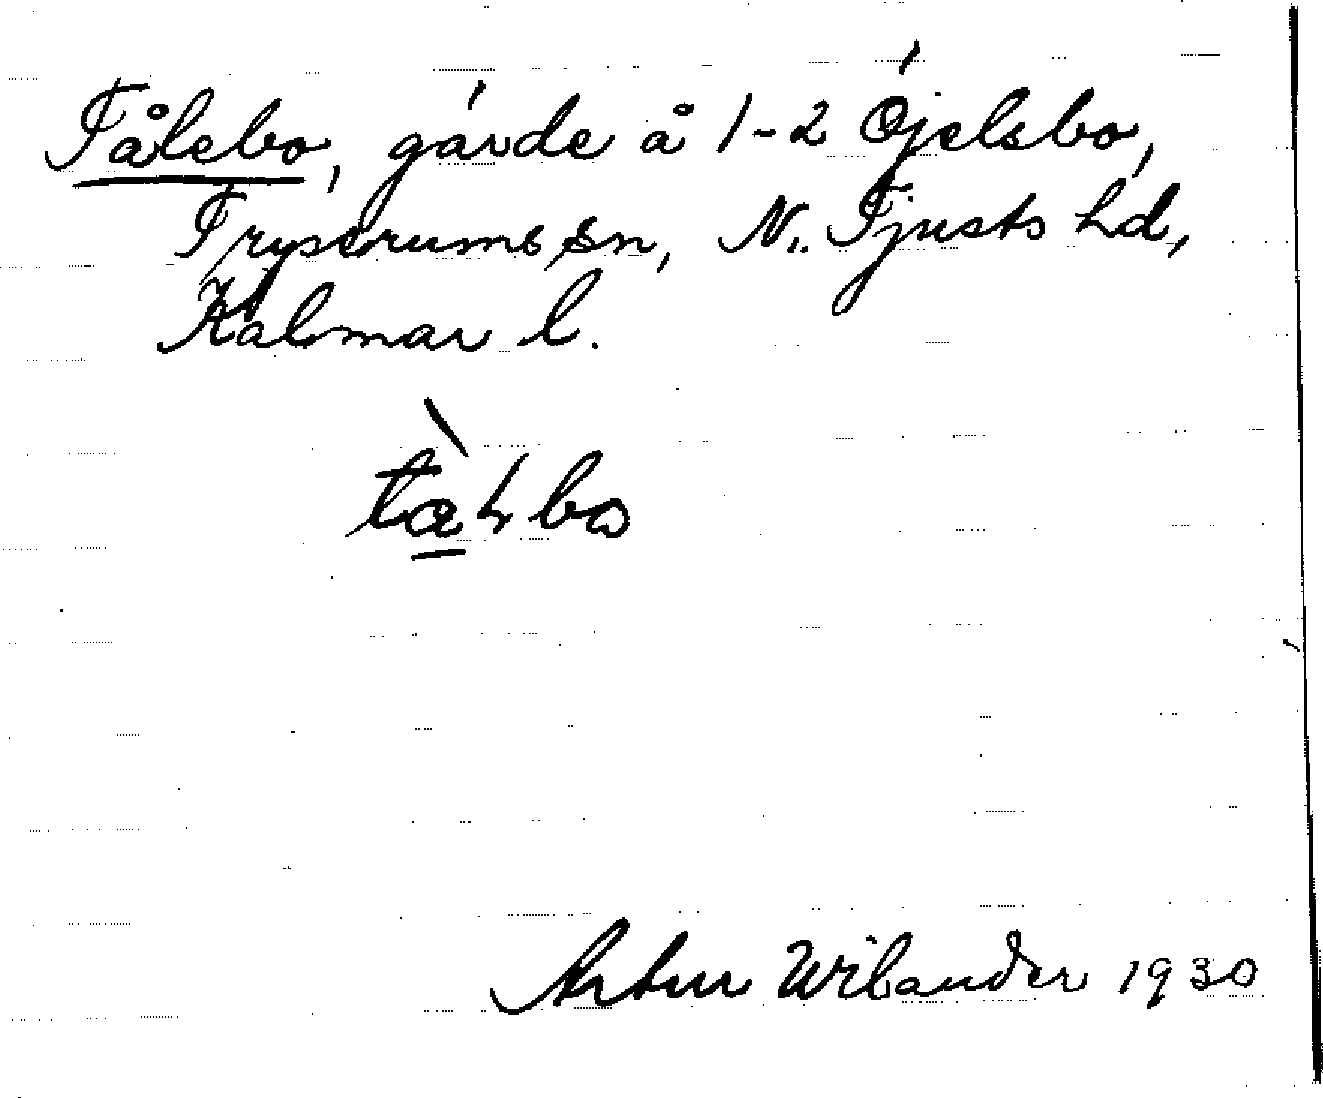 Tålebo, gärde å 1-2 Öjelsbo,
Tryserums sn, N. Tjusts hd,
Kalmar l.
Artur Wilander 1930